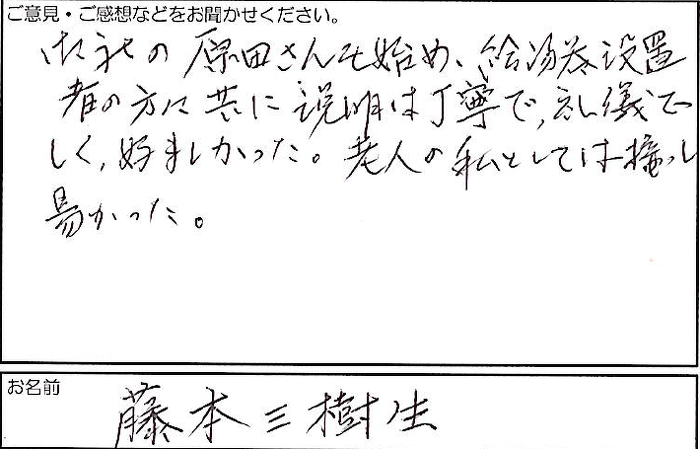 ご意見・ご感想などをお聞かせください。
御社の原田さんを始め、給湯器設置
者の方に共に説明は丁寧で、礼儀正
しく、好ましかった。老人の私としては接し
易かった。
お名前
藤本三樹生